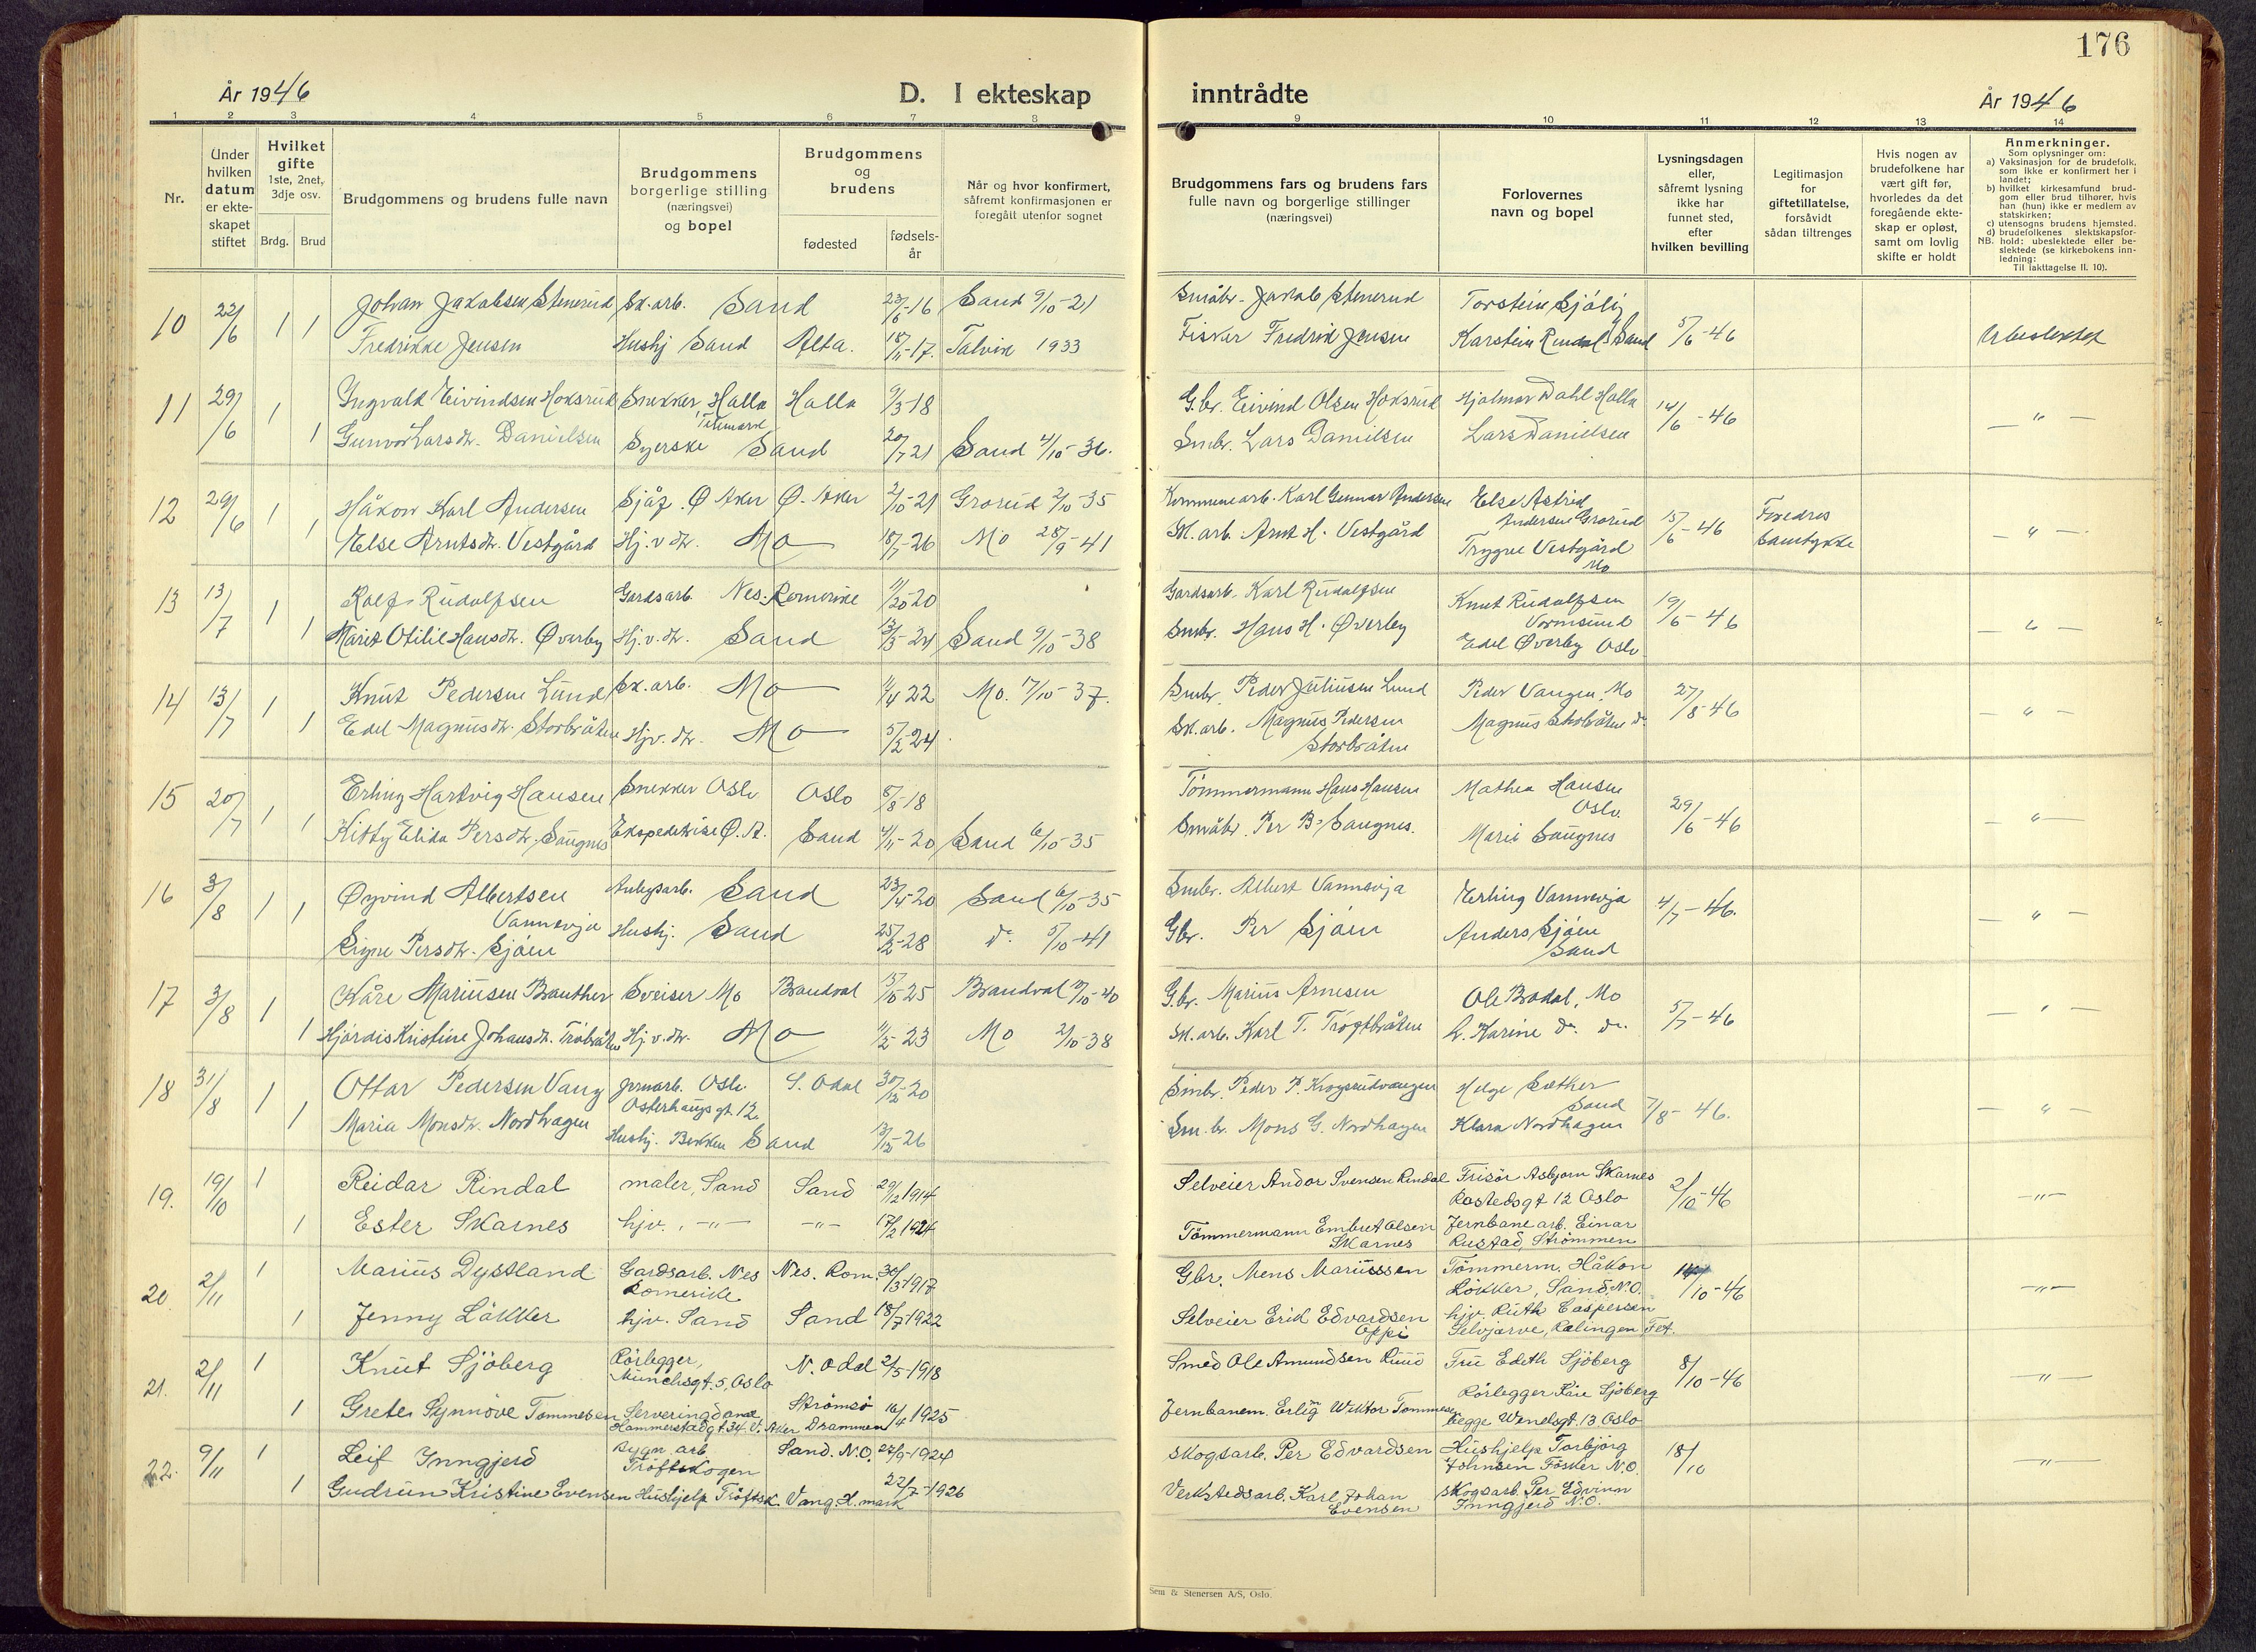 176
År 1946
D. I ekteskap
inntrådte
År 1946
1 2 3 4 5 6 7 8
9 10 11 12 13 14
Nr.
Under hvilken datum er ekteskapet stiftet
Hvilket gifte
1ste, 2net, 3dje osv.
Brdg. Brud
Brudgommens og brudens fulle navn
Brudgommens borgerlige stilling (næringsvei) og bopel
Brudgommens og brudens
fødested
fødsels-år
Når og hvor konfirmert, såfremt konfirmasjonen er foregått utenfor sognet
Brudgommens fars og brudens fars fulle navn og borgerlige stillinger (næringsvei)
Forlovernes navn og bopel
Lysningsdagen eller, såfremt lysning ikke har funnet sted, efter hvilken bevilling
Legitimasjon for giftetillatelse, forsåvidt sådan tiltrenges
Hvis nogen av brudefolkene har vært gift før, hvorledes da det foregående ekteskap er opløst, samt om lovlig skifte er holdt
Anmerkninger.
Som oplysninger om:
a) Vaksinasjon for de brudefolk, som ikke er konfirmert her i landet;
b) hvilket kirkesamfund brudgom eller brud tilhører, hvis han (hun) ikke er medlem av statskirken;
c) utensogns brudens hjemsted.
d) brudefolkenes slektskapsforhold: ubeslektede eller beslektede (se kirkebokens innledning:
NB.
Til iakttagelse II. 10).
10 22/6 1 1 Johan Jakobsen Stenerud Sk.arb. Sand 23/6-16 Sand 9/10-21 Småbr. Jakob Stenerud Torstein Sjölig
Fredrikke Jensen Hushj Sand Alta. 18/11-17. Talvik 1933 Fisker Fredrik Jensen Karstein Sand 5/6-46 Ubeslektet
11 29/6 1 Ingvald Eivindsen Hoksrud Snekker, Holla Telemark Holla 9/3-18 G.br. Eivind Olsen Hoksrud Hjalmar Dahl Holla 14/6-46
1 Gunvor Larsdtr. Danielsen Syerske Sand 20/7 21 Sand 4/10-36. Smbr. Lars Danielsen Lars Danielsen — " —
12 29/6 1 1 Håkon Karl Andersen Sjåf. Ø Aker Ø. Aker 2/10-21 Grorud 2/10-35 Kommunearb. Karl Gunnar Andersen Else Astrid Andersen Grorud 15/6-46 Foredres Samtykke
Else Arntsdtr. Vestgård Hj.v.dtr. Mo 18/7-26 Mo 28/9-41 Sk.arb. Arnt H. Vestgård Trygve Vestgård Mo — " —
13 13/7 1 1 Rolf Rudolfsen Gardsarb. Nes. Romerike 11/10-20 Gardsarb. Karl Rudolfsen Knut Rudolfsen Vormsund 19/6-46
Marit Otilie Hansdtr. Øverby Hj.v.dtr. Sand 13/3-24 Sand 9/10-38 Smbr. Hans H. Øverby Edel Øverby Oslo — " —
14 13/7 1 1 Knut Pedersen Lund Sk.arb. Mo 11/4 22 Mo. 17/10-37. Smbr. Peder Juliusen Lund Peder Vangen, Mo 27/8-46
Edel Magnusdtr. Storbråten Hjv.dtr. Mo 5/2-24 Sk.arb. Magnus Pedersen Storbråten Magnus Storbråten do — " —
15 20/7 1 1 Erling Hartvig Hansen Snekker Oslo Oslo 8/8-18 Tömmermann Hans Hansen Mathea Hansen Oslo. 29/6-46
Kitty Elida Persdtr. Saugnes Ekspeditrise Ø.A. Sand 4/11-20 Sand 6/10-35 Småbr. Per B. Saugnes. Marie Saugnes — " —
16 3/8 1 1 Øyvind Albertsen Vannevja Anlegsarb. Sand 23/4-20 Sand 6/10-35 Smbr. Albert Vannevja Erling Vannevja 4/7-46.
Signe Persdtr. Sjöen Hushj. Sand 25/2-28 do. 5/10-41 Gbr. Per Sjöen Anders Sjöen Sand — " —
17 3/8 1 Kåre Mariusen Branther Sveiser Mo Brandval 15/10-25 Brandval G.br. Marius Arnesen Ole Bradal, Mo 5/7-46
1 Hjördis Kristine Johansdtr. Hj.v.dtr. Mo 11/2-23 Mo 2/10-38 Sk.arb. Karl T. Karine do do. — " —
18 31/8 1 1 Ottar Pedersen Vang Jernarb. Oslo Osterhaugsgt. 12. S. Odal 30/12-20 Smbr. Peder P. Krogsrudvangen Helge Sæther Sand 7/8-46.
Maria Monsdtr. Nordhagen Hushj. Bekken Sand 13/12-26 Sm.br. Mons G. Nordhagen Klara Nordhagen — " —
19. 19/10 1 Reidar Rindal maler, Sand Sand 29/12 1914 Selveier Andor Svensen Rindal Frisör Asbjørn Skarnes Rostedsgt 12 Oslo 2/10-46 —"—
1 Ester Skarnes hjv., —"— —"— 17/2 1924 Tömmermann Embret Olsen Skarnes Jernbane arb. Einar Rustad, Strömmen
20. 2/11 1 Marius Dystland Gardsarb. Nes Romerike Nes. Rom. 30/3 1917 Gbr. Mens Mariussen Tömmerm. Håkon Løkker, Sand, N.O. /10-46 —"—
1 Jenny Løkker hjv. Sand Sand 18/7 1922 Selveier Erik Edvardsen Oppi hjv Ruth Caspersen Selvjarve, Rælingen Fet.
21. 2/11 1 Knut Sjöberg Rörlegger, Munchsgt. 5, Oslo N. Odal 2/5-1918 Smed Ole Amundsen Ruud Fru Edith Sjöberg 8/10-46 —"—
1 Grete Synnöve Tommesen Serveringsdame Hammerstadgt 34. V. Aker Strømsø Drammen 16/4 1925 Jernbanem. Erlig Wiktor Tommesen Rörlegger Kåre Sjöberg begge Wenelsgt. 13. Oslo
22. 9/11 1 Leif Inngjerd bygn. arb. Tröftskogen Sand. N.O. 27/9-1924 Skogsarb. Per Edvardsen Hushjelp Torbjörg Johnsen Fösker N.O. 18/10 —"—
1 Gudrun Kristine Evensen Hushjelp Tröftsk. Vang H.mark 22/7-1926 Verkstedsarb. Karl Johan Evensen Skogsarb. Per Edvinn Inngjerd N.O.
Sem & Stenersen A/S, Oslo.